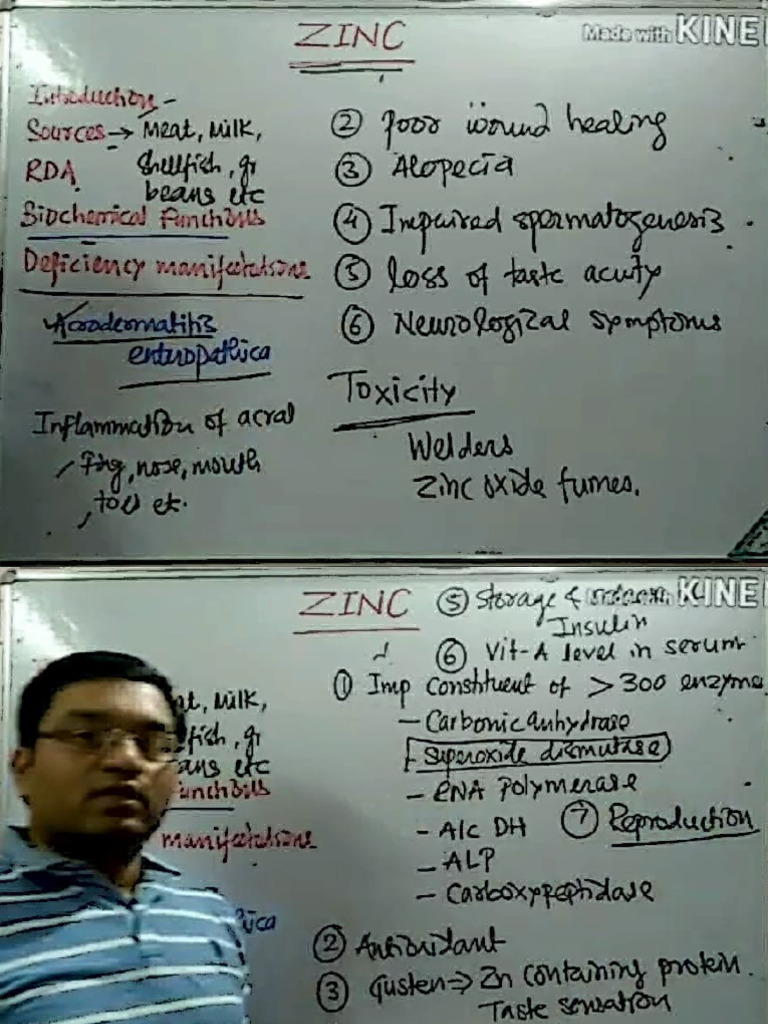 ZINC
Made with KINE
Introduction -
Sources → Meat, Milk,
Shellfish, gr
beans etc
RDA
Biochemical Functions
Deficiency manifestations
Acrodermatitis
enteropathica
Inflammation of acral
nose, mouth
② Poor wound healing
③ Alopecia
④ Impaired spermatogenesis
⑤ loss of taste acuity
⑥ Neurological symptoms
Toxicity
Welders
Zinc oxide fumes.
ZINC
KINE
⑤ Storage &
Insulin
⑥ Vit-A level in serum
① Imp constituent of > 300 enzyme
- Carbonic anhydrase
- Superoxide dismutase
- RNA Polymerase
- Alc DH
- ALP
- Carboxypeptidase
⑦ Reproduction
② Antioxidant
③ Gusten ⇒ Zn containing protein.
Taste sensation
at, Milk,
fish, gr
ans etc
unctions
manifestations
ica